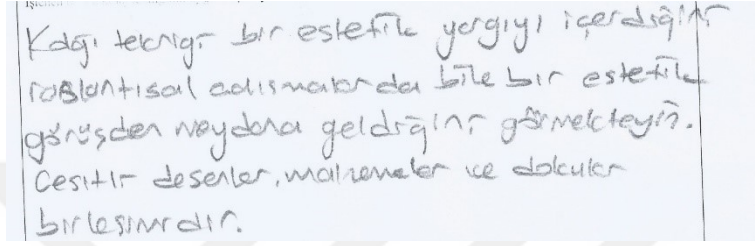 Kolaj tekniği bir estetik yargıyı içerdiğini
rastlantısal çalışmalarda bile bir estetik
görüşden meydana geldiğini görmekteyim.
Çeşitli desenler, malzemeler ve dokular
birleşimidir.